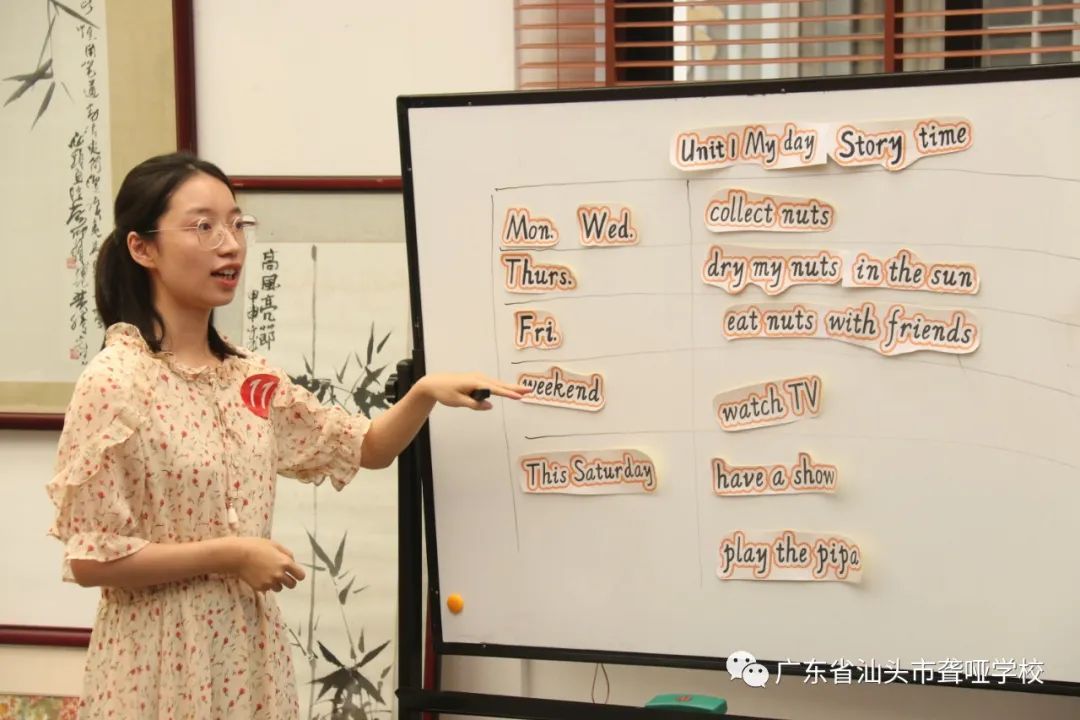 Unit 1 My day Story time
Mon. Wed. collect nuts
Thurs. dry my nuts in the sun
Fri. eat nuts with friends
weekend watch TV
This Saturday have a show
play the pipa
11
高風亮節
广东省汕头市聋哑学校